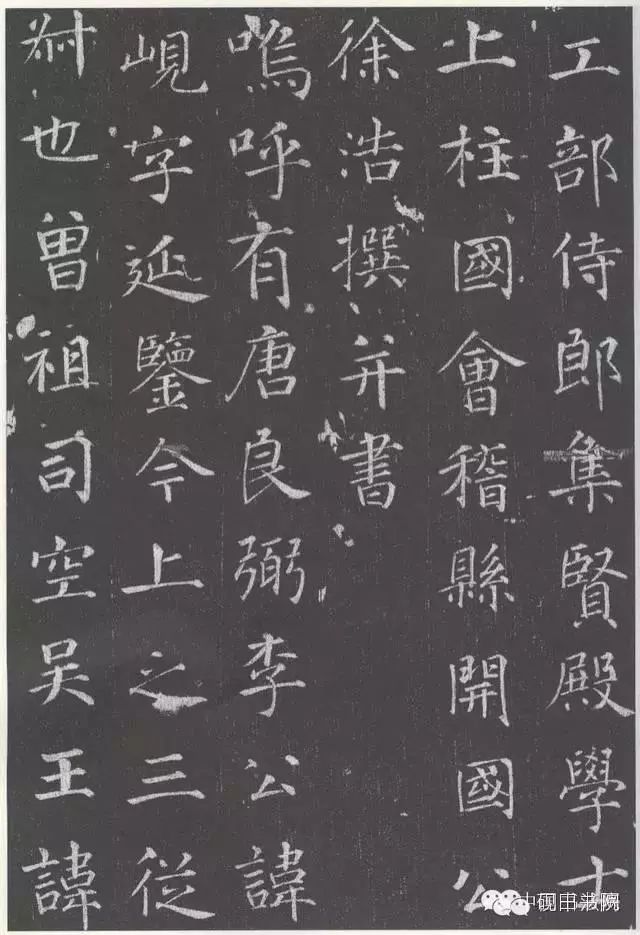 工部侍郎集賢殿學士
上柱國會稽縣開國公
徐浩撰并書
嗚呼有唐良弼李公諱
峴字延鑒今上之三從
叔也曾祖司空吳王諱